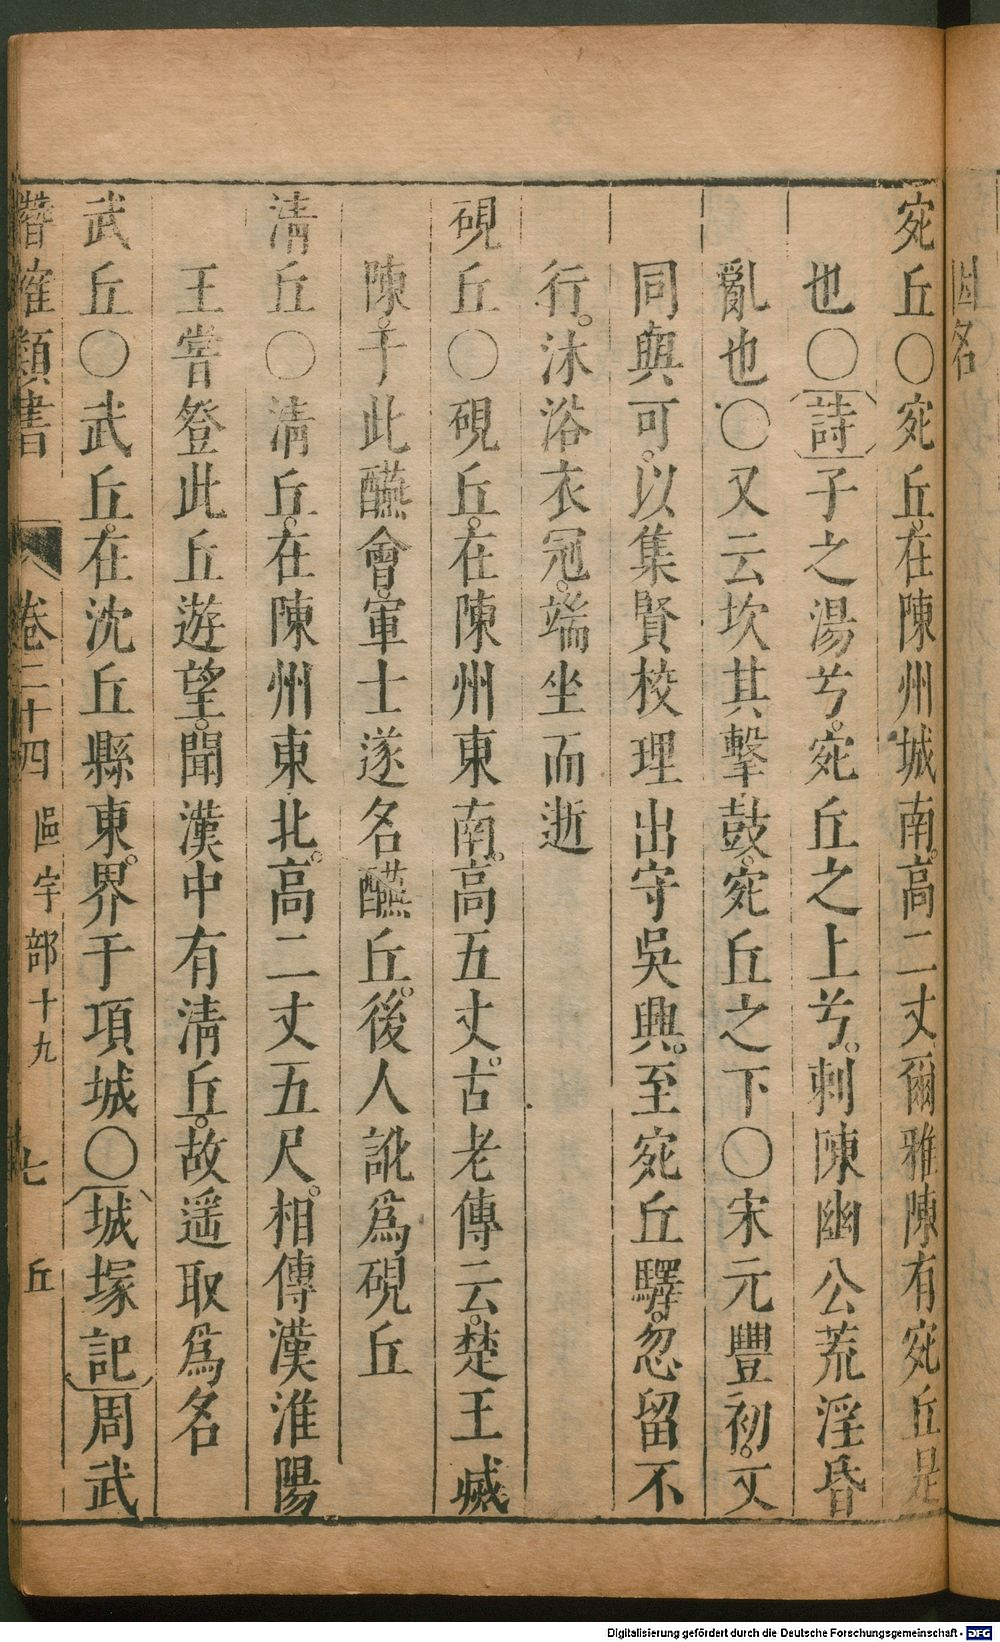 因名
宛丘〇宛丘在陳州城南高二丈爾雅陳有宛丘是
也〇詩子之湯兮宛丘之上兮刺陳幽公荒淫昏
亂也〇又云坎其擊鼓宛丘之下〇宋元豐初文
同與可以集賢校理出守吳興至宛丘驛忽留不
行沐浴衣冠端坐而逝
硯丘〇硯丘在陳州東南高五丈古老傳云楚王滅
陳于此醼會軍士遂名醼丘後人訛爲硯丘
淸丘〇淸丘在陳州東北高二丈五尺相傳漢淮陽
王嘗登此丘遊望聞漢中有淸丘故遥取爲名
武丘〇武丘在沈丘縣東界于項城〇城塚記周武
潛確類書 卷二十四 區宇部十九 七 丘
Digitalisierung gefördert durch die Deutsche Forschungsgemeinschaft - DFG